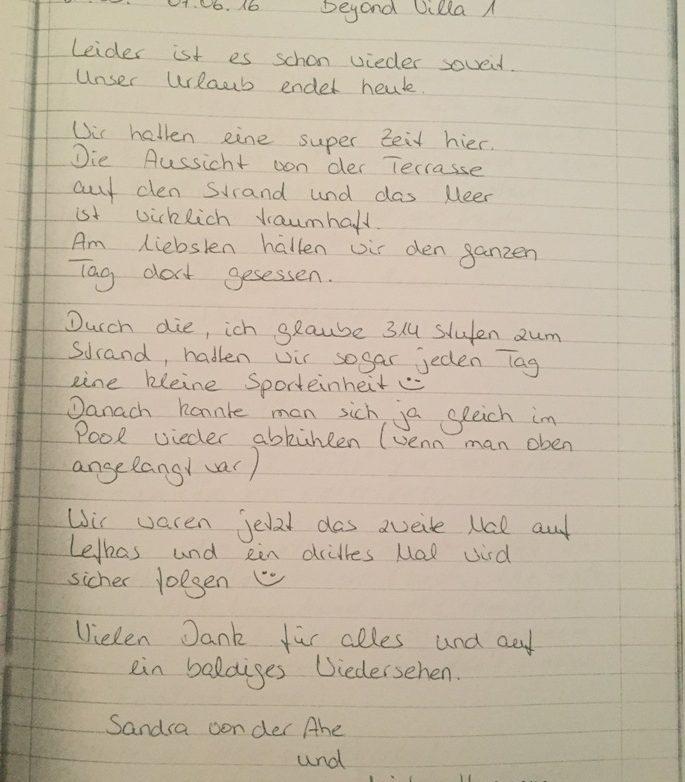 07.06.16 Beyond Villa 1
Leider ist es schon wieder soweit.
Unser Urlaub endet heute.
Wir hatten eine super Zeit hier.
Die Aussicht von der Terrasse
auf den Strand und das Meer
ist wirklich traumhaft.
Am liebsten hätten wir den ganzen
Tag dort gesessen.
Durch die, ich glaube 314 Stufen zum
Strand, hatten wir sogar jeden Tag
eine kleine Sporteinheit ☺
Danach konnte man sich ja gleich im
Pool wieder abkühlen (wenn man oben
angelangt war)
Wir waren jetzt das zweite Mal auf
Lefkas und ein drittes Mal wird
sicher folgen ☺
Vielen Dank für alles und auf
ein baldiges Wiedersehen.
Sandra von der Ahe
und